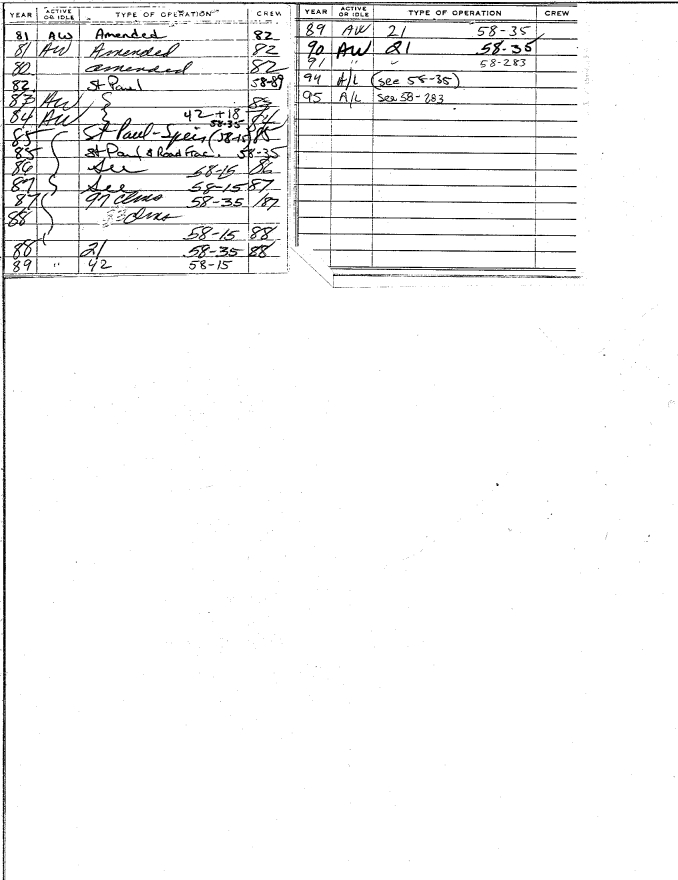 YEAR ACTIVE OR IDLE TYPE OF OPERATION CREW
81 AW Amended 82
81 AW Amended 82
80 amended 82
82 St Paul 58-89
83 AW } 83
84 AW } 42 + 18 58-35 84
85 St Paul - (58-15) 85
85 St Paul & Road Frac. 58-35
86 See 58-15 86
87 See 58-15 87
87 97 clms 58-35 /87
88 clms
58-15 88
88 21 58-35 88
89 " 42 58-15
YEAR ACTIVE OR IDLE TYPE OF OPERATION CREW
89 AW 21 58-35
90 AW 21 58-35
91 " " 58-283
94 A/L (see 58-35)
95 A/L see 58-283